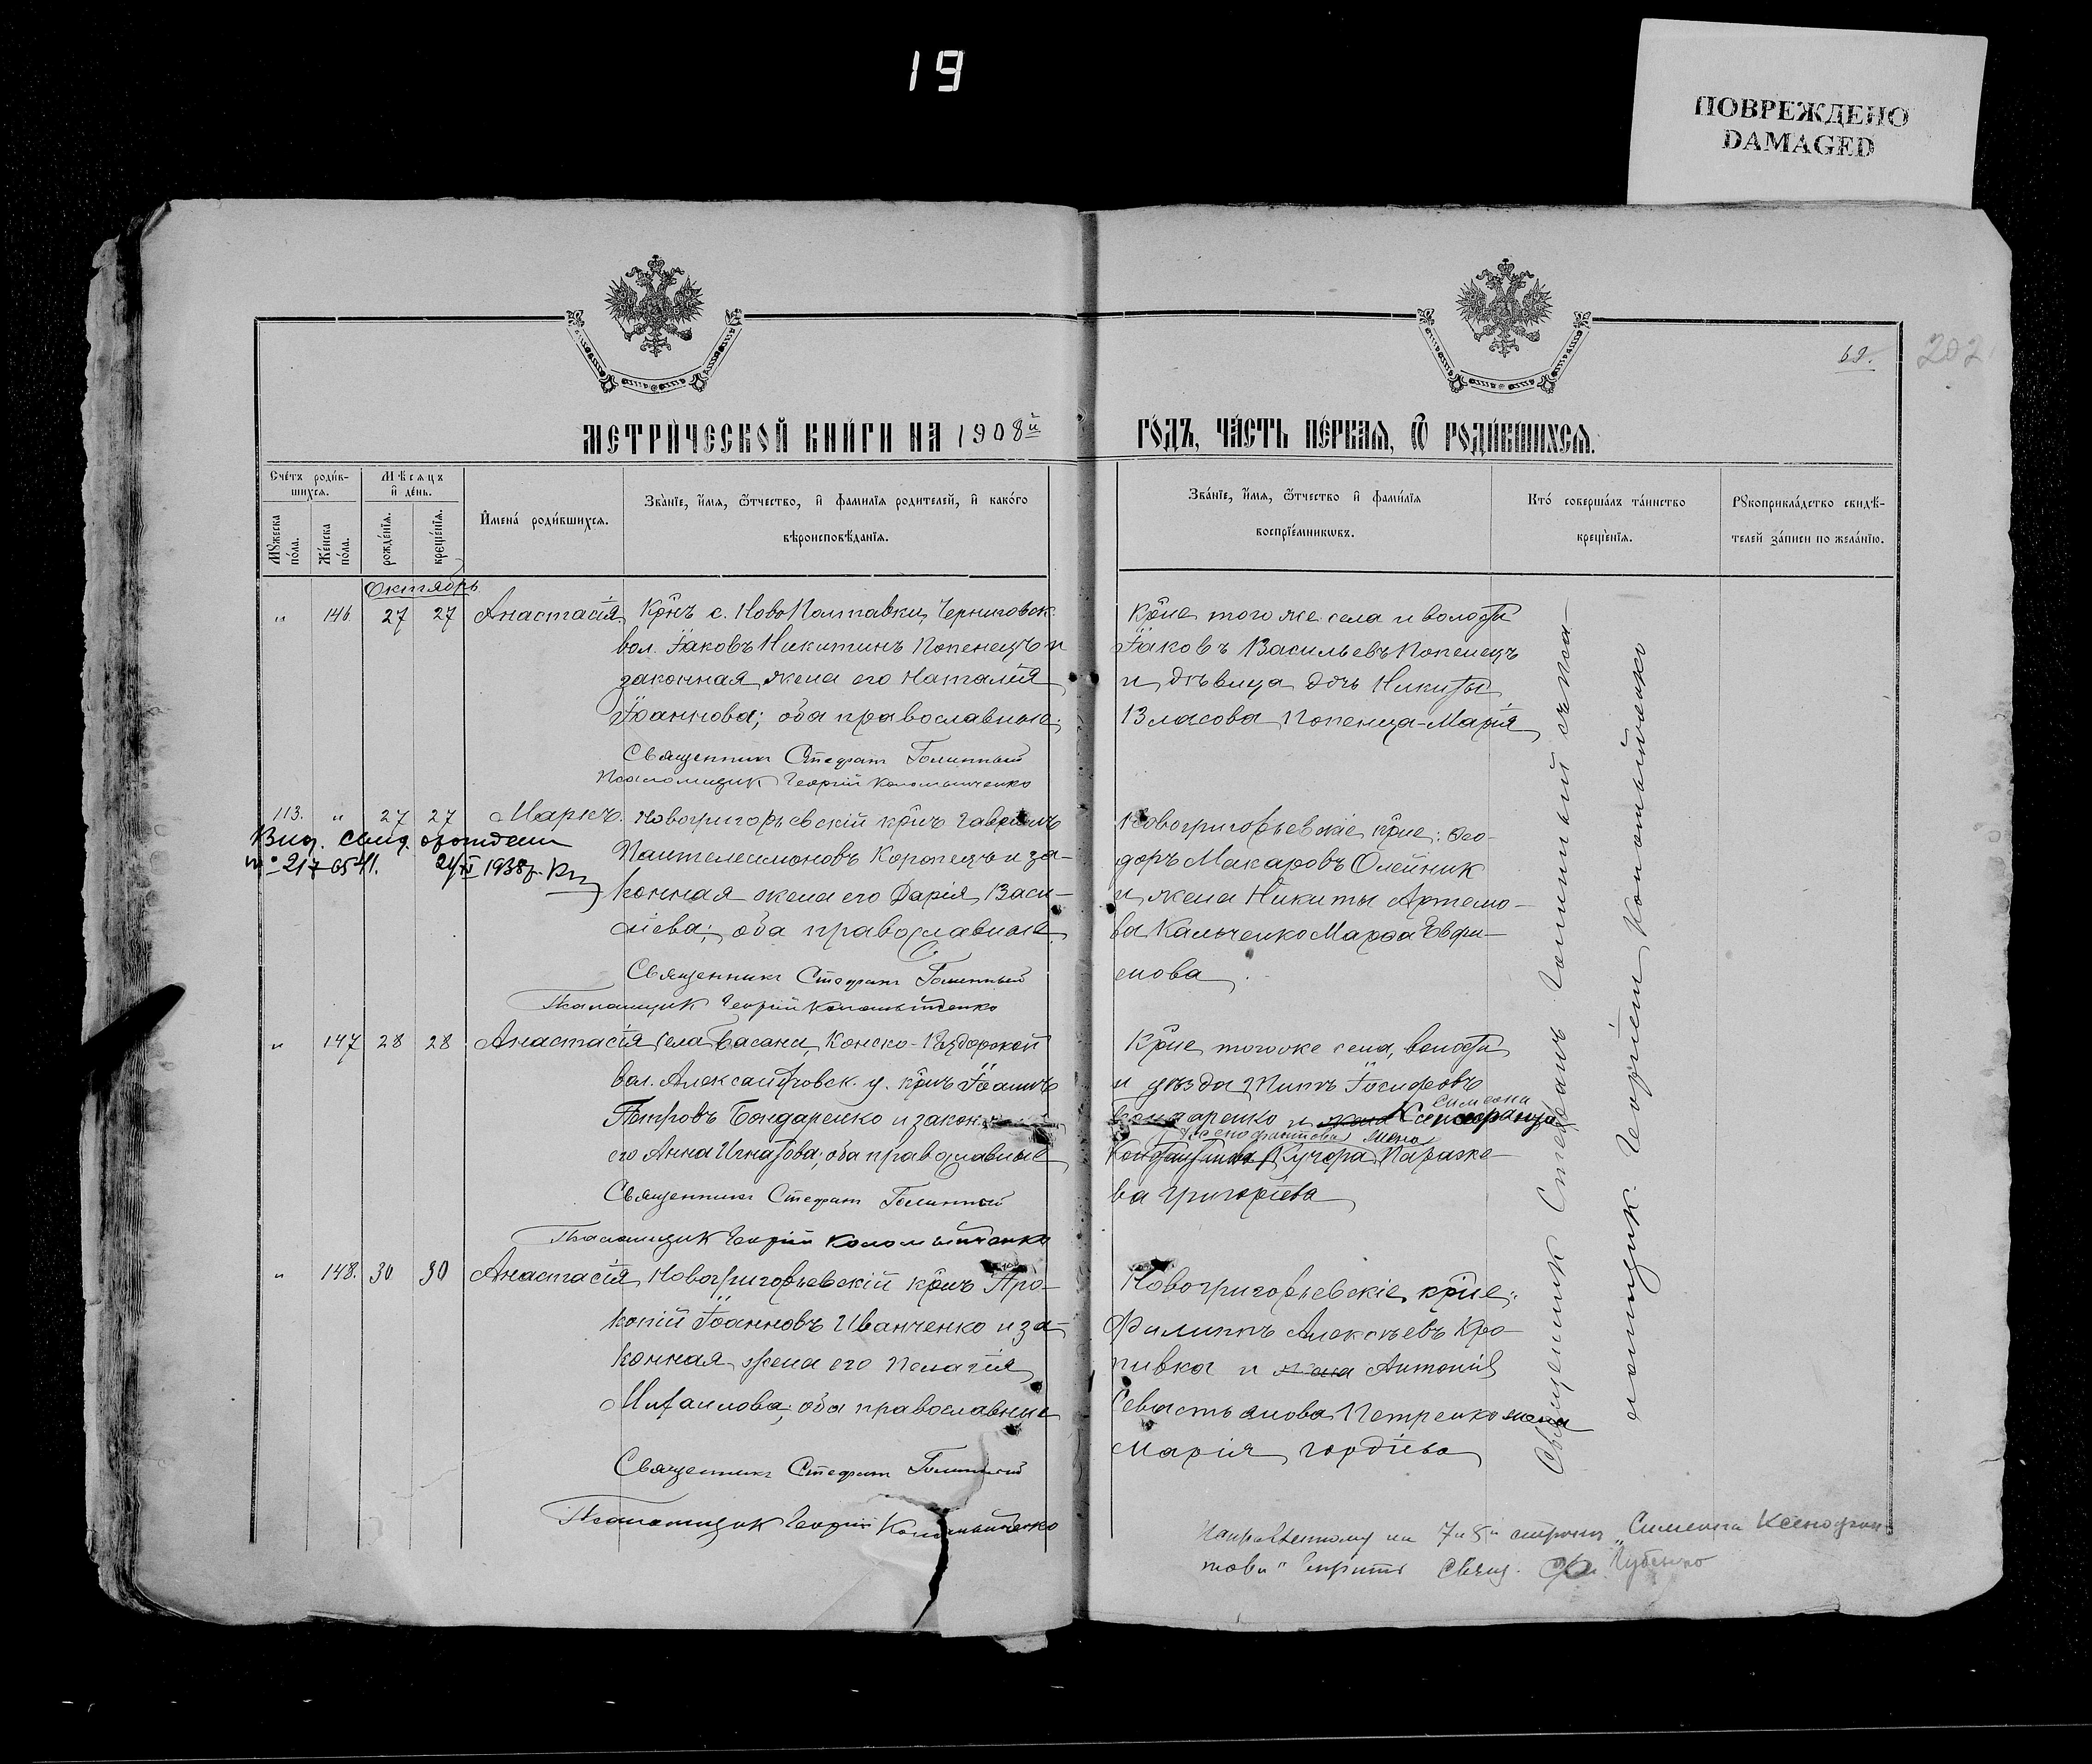 19
ПОВРЕЖДЕНО
DAMAGED
69.
202
МЕТРИЧЕСКОЙ КНИГИ НА 1908й
ГОДЪ, ЧАСТЬ ПЕРВАЯ, Ѿ РОДИВШИХСЯ.
Счетъ родившихся.
Мѣсяцъ и день.
Мужеска пола.
Женска пола.
рожденїя.
крещенїя.
Имена родившихся.
Званїе, имя, ѿтчество, и фамилїя родителей, и какого
вѣроисповѣданїя.
Званїе, имя, ѿтчество и фамилїя
воспрїемниковъ.
Кто совершалъ таинство
крещенїя.
Рукоприкладство свидѣ-
телей записи по желанїю.
Октябрь
" 146 27 27 Анастасія. Крнъ с. НовоПолтавки, Черниговск.
вол. Іаковъ Никитинъ Попенецъ и
законная жена его Наталія
Іоаннова; оба православные.
Священникъ Стефанъ Голинный
Псаломщикъ Георгій Коломыйченко
Крне того же села и волости
Іаковъ Васильевъ Попенецъ
и дѣвица дочь Никиты
Власова Попенца-Марія
113. " 27 27 Маркъ. Новогригорьевскій крнъ Гавріилъ
Пантелеимоновъ Коропецъ и за-
конная жена его Дарія Васи-
ліева; оба православные.
Священникъ Стефанъ Голинный
Псаломщикъ Георгій Коломыйченко
Выд. свид. о рожден
21/XI 1938 г.
Новогригорьевскіе крне: Ѳео-
доръ Макаровъ Олейник
и жена Никиты Артемо-
ва Кальченко Марѳа Евфи-
мова.
" 147 28 28 Анастасія Села Басани, Конско-Раздорской
вол. Александровск. у. крнъ Іоаннъ
Петровъ Бондаренко и закон.
его Анна Игнатова; оба православные
Священникъ Стефанъ Голинный
Псаломщикъ Георгій Коломыйченко
Крне тогоже села, волости
и уѣзда Іосифовъ
Симеона
Бондаренко и жена
Ксенофонтова жена
Кучера Параске-
ва Григоріева
" 148. 30 30 Анастасія Новогригорьевскій крнъ Про-
копій Іоанновъ Иванченко и за-
конная жена его Пелагія
Михаилова; оба православные
Священникъ Стефанъ Голинный
Псаломщикъ Георгій Коломыйченко
Новогригорьевскіе крне:
Филиппъ Алексѣевъ Кро-
пивка и жена Антонія
Севастьянова Петренко жена
Марія Гордіева
Священник Стефанъ Голинный съ пса-
ломщик. Георгіем Коломыйченко
Исправленному на 7 и 8 строкахъ „Симеона Ксенофон-
това" верить Свящ.